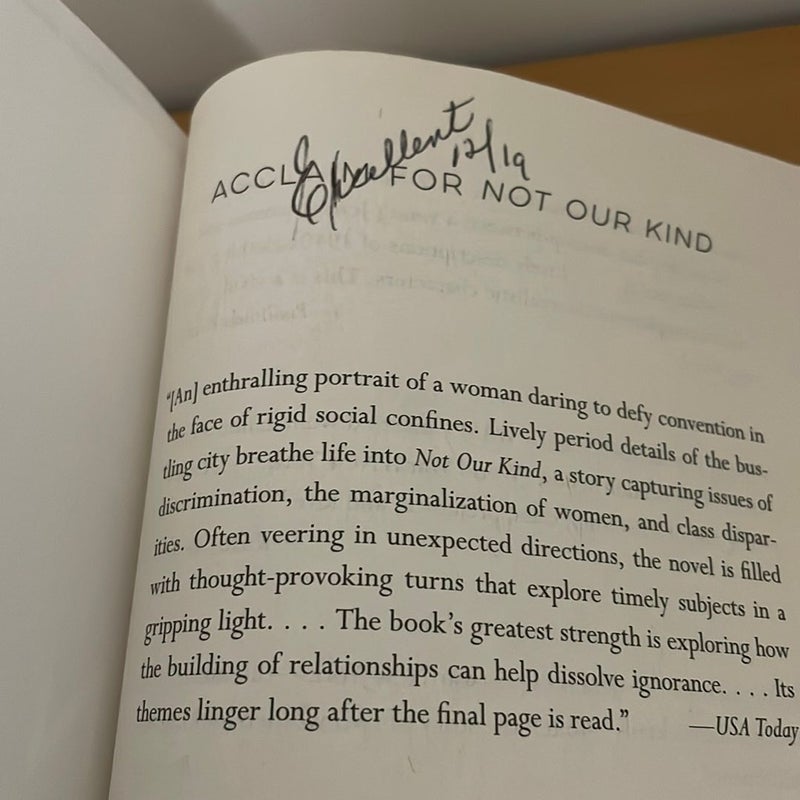 Excellent
12/19
ACCLAIM FOR NOT OUR KIND
“[An] enthralling portrait of a woman daring to defy convention in
the face of rigid social confines. Lively period details of the bus-
tling city breathe life into Not Our Kind, a story capturing issues of
discrimination, the marginalization of women, and class dispar-
ities. Often veering in unexpected directions, the novel is filled
with thought-provoking turns that explore timely subjects in a
gripping light. . . . The book’s greatest strength is exploring how
the building of relationships can help dissolve ignorance. . . . Its
themes linger long after the final page is read.”
—USA Today